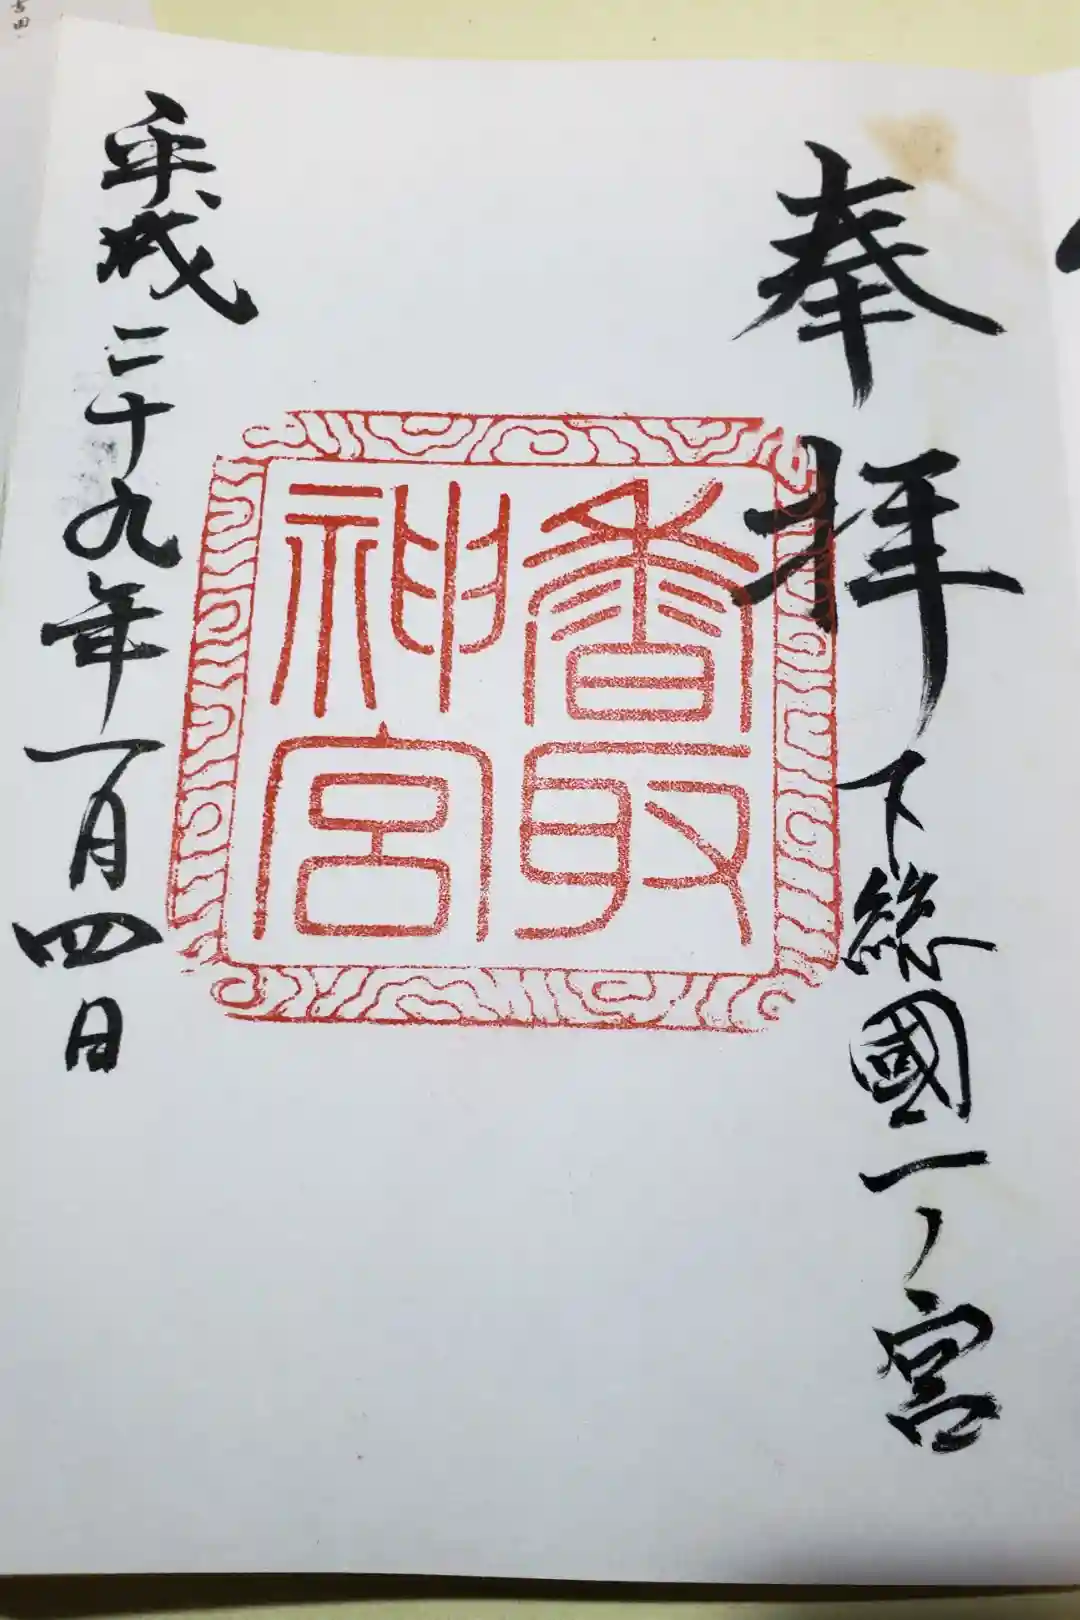 奉拝
下総國一ノ宮
香取
神宮
平成二十九年一月四日
吉田